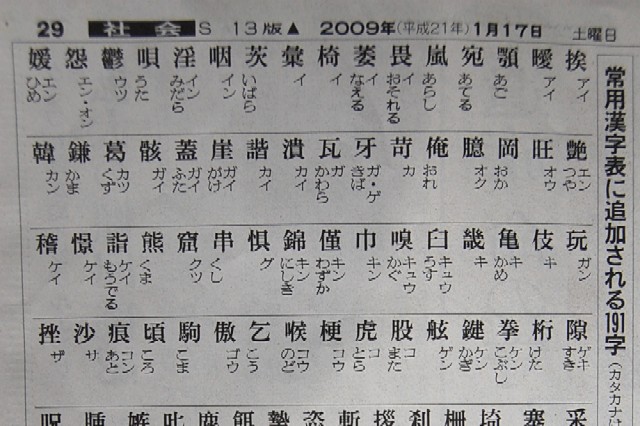 29 社会 S 13版▲ 2009年(平成21年) 1月17日 土曜日
常用漢字表に追加される191字(カタカナは
挨 アイ 曖 アイ 顎 あご 宛 あてる 嵐 あらし 畏 イ おそれる 萎 イ なえる 椅 イ 彙 イ 茨 いばら 咽 イン 淫 イン みだら 唄 うた 鬱 ウツ 怨 エン・オン 媛 エン ひめ
艶 エン つや 旺 オウ 岡 おか 臆 オク 俺 おれ 苛 カ 牙 ガ・ゲ きば 瓦 ガ かわら 潰 カイ 諧 カイ 崖 ガイ がけ 蓋 ガイ ふた 骸 ガイ 葛 カツ くず 鎌 かま 韓 カン
玩 ガン 伎 キ 亀 キ かめ 畿 キ 臼 キュウ うす 嗅 キュウ かぐ 巾 キン 僅 キン わずか 錦 キン にしき 惧 グ 串 くし 窟 クツ 熊 くま 詣 ケイ もうでる 憬 ケイ 稽 ケイ
隙 ゲキ すき 桁 けた 拳 ケン こぶし 鍵 ケン かぎ 舷 ゲン 股 コ また 虎 コ とら 梗 コウ 喉 コウ のど 乞 こう 傲 ゴウ 駒 こま 頃 ころ 痕 コン あと 沙 サ 挫 ザ
采 塞 埼 柵 刹 拶 斬 恣 摯 餌 鹿 叱 嫉 腫 呪